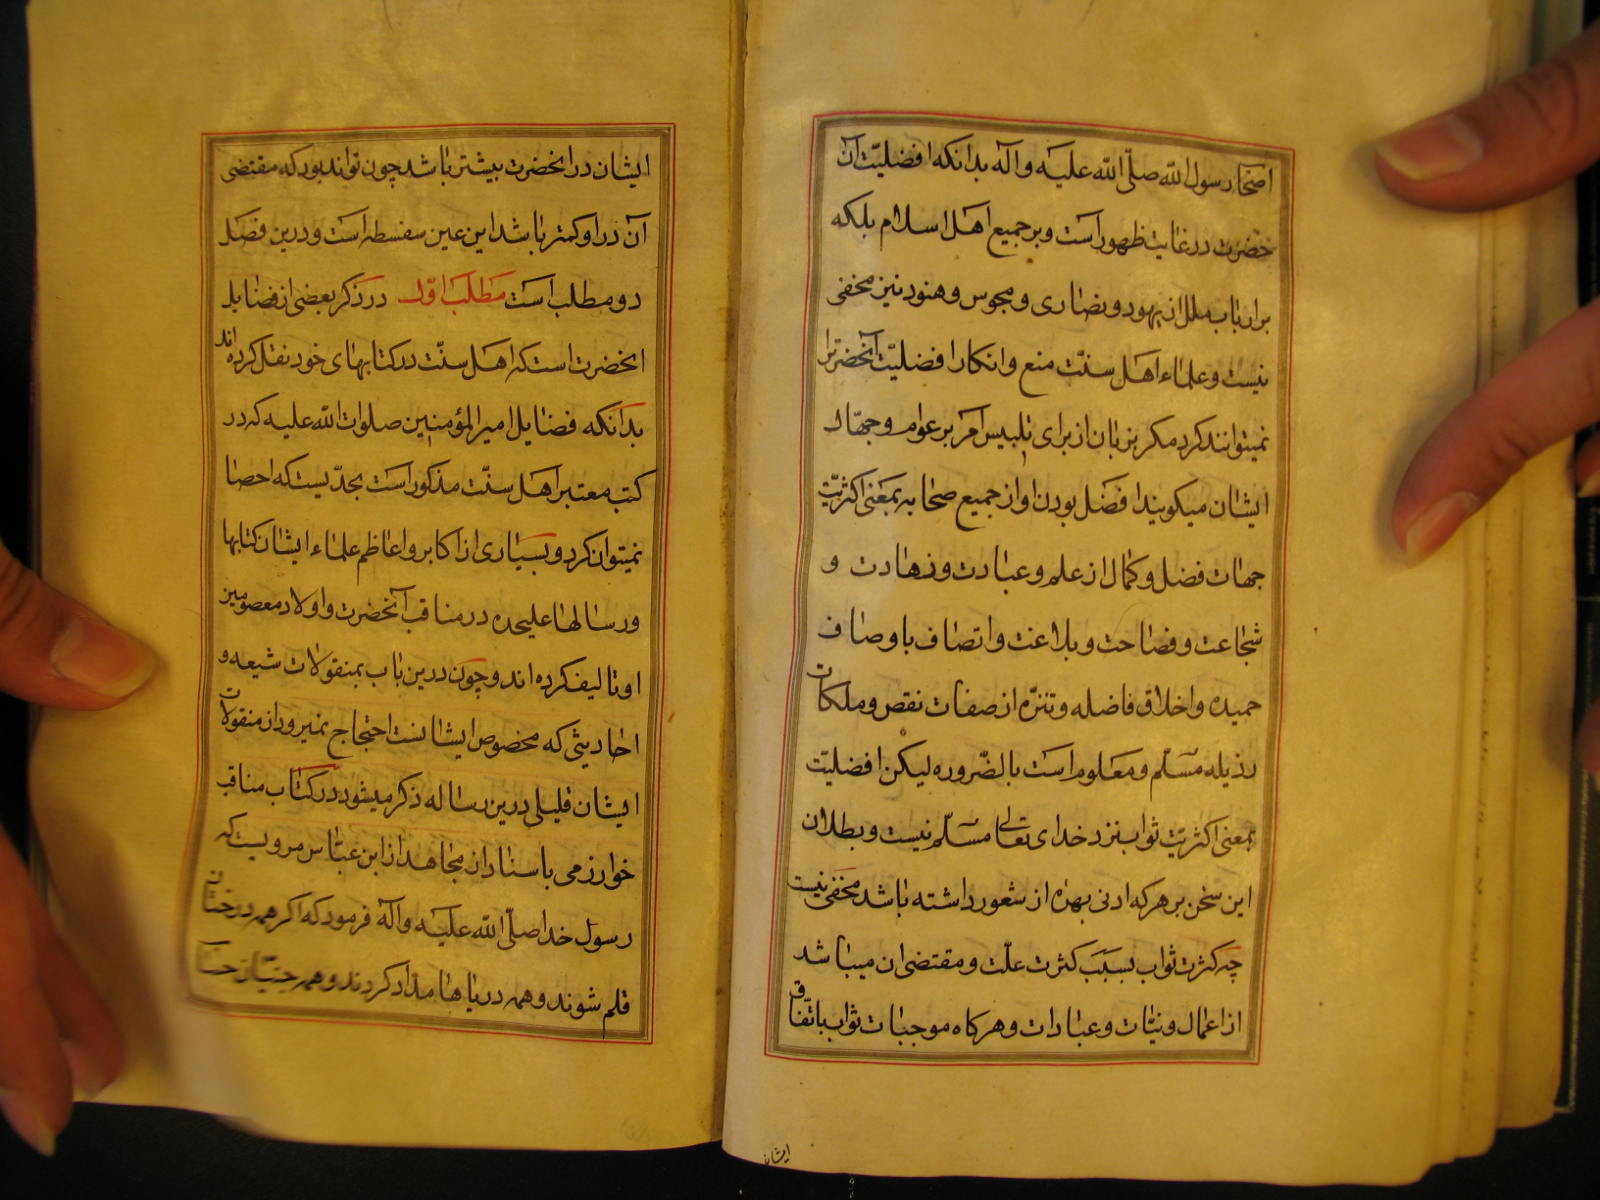 اصحاب رسول الله صلّی الله علیه و آله بدانکه افضلیّت آن
حضرت در غایت ظهور است و بر جمیع اهل اسلام بلکه
بر ارباب ملل از یهود و نصاری و مجوس و هنود نیز مخفی
نیست و علماء اهل سنّت منع و انکار افضلیّت آنحضرت را
نمیتوانند کرد مکر بزبان از برای تلبیس امر بر عوام و جهّال
ایشان میکویند افضل بودن او از جمیع صحابه بمعنی اکثریّت
جهات فضل و کمال از علم و عبادت و زهادت و
شجاعت و فصاحت و بلاغت و اتصاف باوصاف
حمیده و اخلاق فاضله و تنزّه از صفات نقص و ملکات
رذیله مسلّم و معلوم است بالضّروره لیکن افضلیّت
بمعنی اکثریّت ثواب نزد خدای تعالی مسلّم نیست و بطلان
این سخن بر هر که ادنی بهره از شعور داشته باشد مخفی نیست
چه کثرت ثواب بسبب کثرت علّت و مقتضی ان میباشد
از اعمال و نیّات و عبادات و هرکاه موجبات ثواب باتّفاق
ایشان
ایشان در انحضرت بیشتر باشد چون تواند بود که مقتضی
آن در او کمتر باشد این عین سفسطه است و درین فصل
دو مطلب است مطلب اوّل در ذکر بعضی از فضایل
انحضرت است که اهل سنّت در کتابهای خود نقل کرده‌اند
بدانکه فضایل امیر المؤمنین صلوات الله علیه که در
کتب معتبر اهل سنّت مذکور است بحدّیست که احصا
نمیتوان کرد و بسیاری از اکابر و اعاظم علماء ایشان کتابها
و رسالها علیحده در مناقب آنحضرت و اولاد معصومین
او تالیف کرده اند و چون درین باب بمنقولات شیعه و
احادیثی که مخصوص ایشانست احتجاج نمیرود از منقولات
ایشان قلیلی درین رساله ذکر میشود در کتاب مناقب
خوارزمی باسناد از مجاهد از ابن عبّاس مرویست که
رسول خدا صلّی الله علیه و آله فرمود که اکر همه درختان
قلم شوند و همه دریاها مداد کردند و همه جنیّان